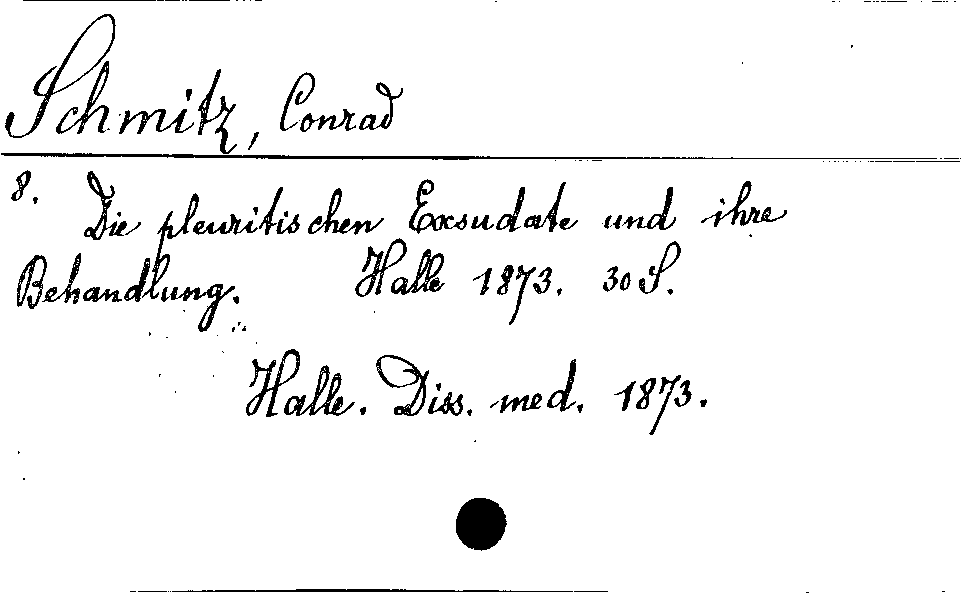 Schmitz, Conrad
8.
Die pleuritischen Exsudate und ihre
Behandlung. Halle 1873. 30 S.
Halle. Diss. med. 1873.